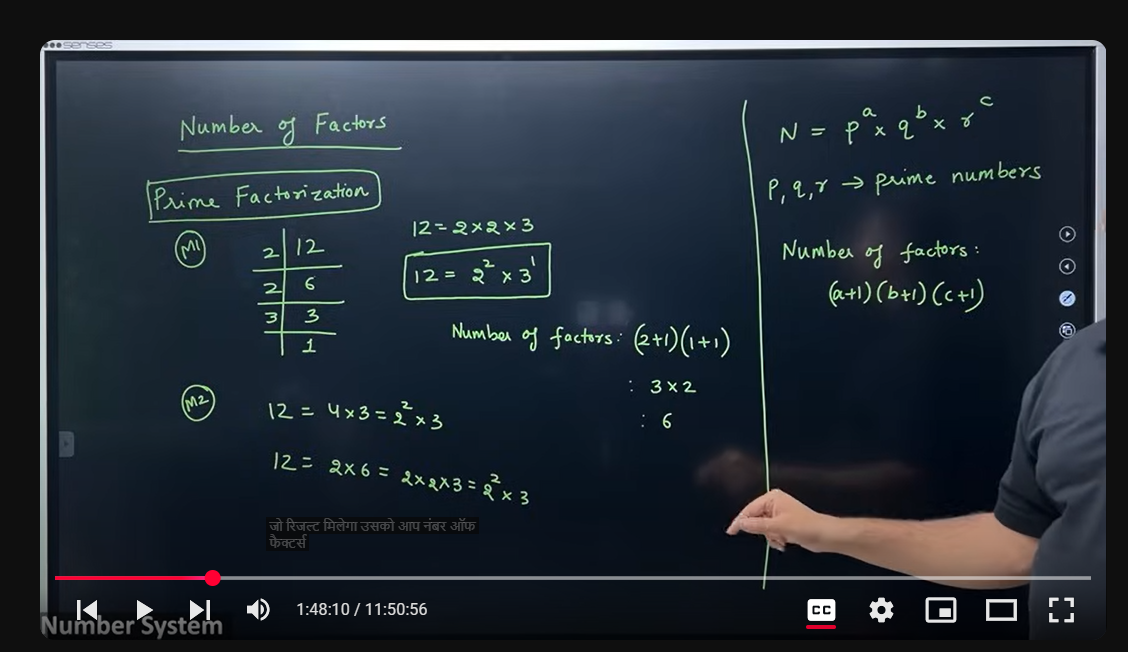 senses
Number of Factors
Prime Factorization
M1
2 | 12
2 | 6
3 | 3
1
12 = 2 × 2 × 3
12 = 2² × 3¹
Number of factors: (2+1)(1+1)
: 3 × 2
: 6
M2
12 = 4 × 3 = 2² × 3
12 = 2 × 6 = 2 × 2 × 3 = 2² × 3
N = pᵃ × qᵇ × rᶜ
p, q, r → prime numbers
Number of factors:
(a+1)(b+1)(c+1)
जो रिजल्ट मिलेगा उसको आप नंबर ऑफ
फैक्टर्स
1:48:10 / 11:50:56
CC
Number System